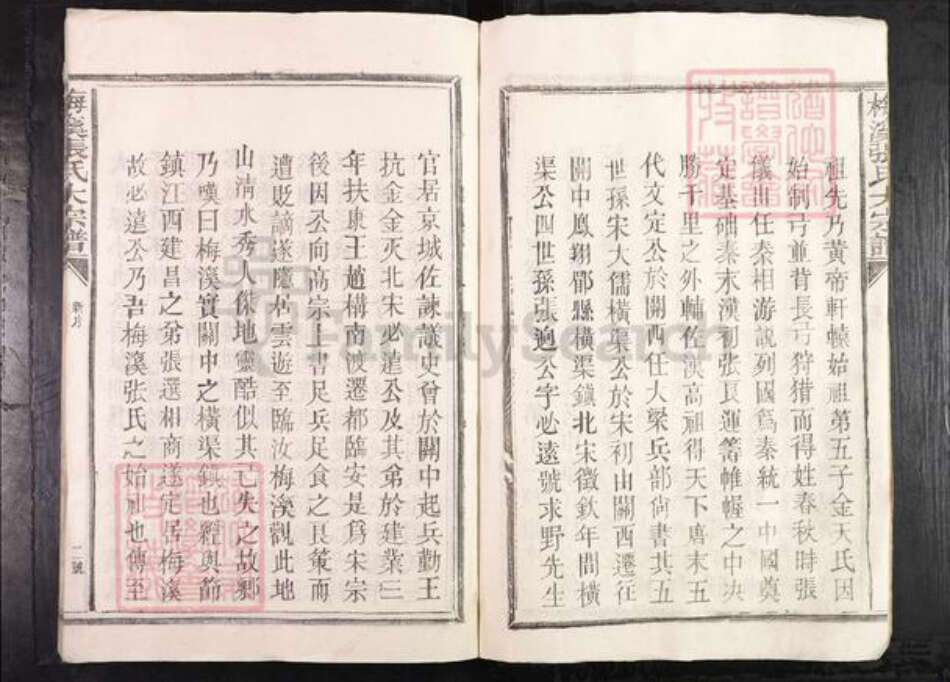 梅溪張氏大宗譜
祖先乃黃帝軒轅始祖第五子金天氏因
始制弓並背長弓狩猎而得姓春秋時張
儀出任秦相游說列國爲秦統一中國奠
定基础秦末漢初張良運籌帷幄之中决
勝千里之外輔佐漢高祖得天下唐末五
代文定公於關西任大梁兵部尙書其五
世孫宋大儒橫渠公於宋初由關西遷往
關中鳳翔郿縣橫渠鎮北宋徽欽年間橫
渠公四世孫張遹公字必遠號求野先生
官居京城佐諫議史曾於關中起兵勤王
抗金金灭北宋必遠公及其弟於建業三
年扶康王趙構南渡遷都臨安是爲宋宗
後因公向高宗上書足兵足食之良策而
遭貶謫遂隱居雲遊至臨汝梅溪觀此地
山淸水秀人傑地靈酷似其已失之故鄕
乃嘆曰梅溪實關中之橫渠鎮也經與前
鎮江西建昌之弟張選相商遂定居梅溪
故必遠公乃吾梅溪張氏之始祖也傳至
梅溪張氏大宗譜
二號
FamilySearch